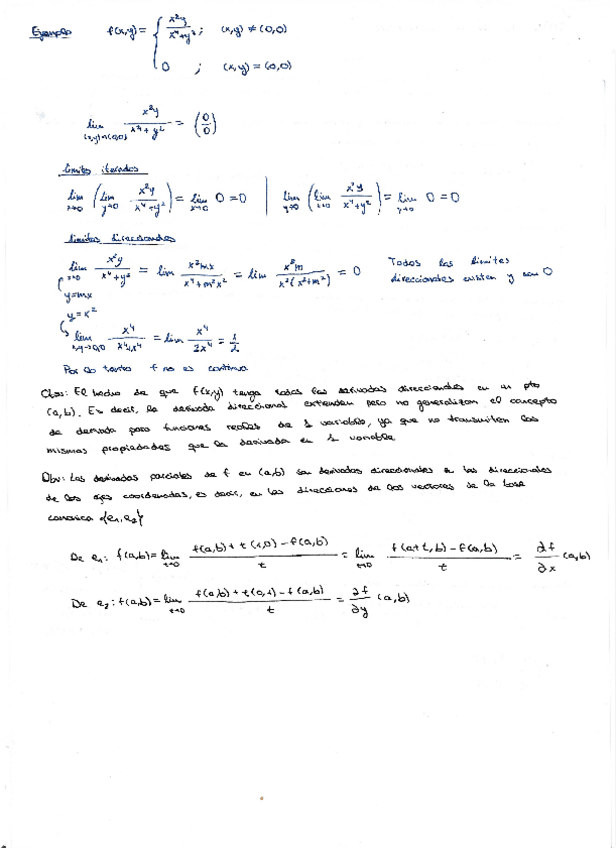 Ejemplo f(x,y) = { x²y / x⁴+y² ; (x,y) ≠ (0,0)
0 ; (x,y) = (0,0)
lim (x,y)→(0,0) x²y / x⁴+y² = (0/0)
límites iterados
lim x→0 ( lim y→0 x²y / x⁴+y² ) = lim x→0 0 = 0 | lim y→0 ( lim x→0 x²y / x⁴+y² ) = lim y→0 0 = 0
límites direccionales
lim x→0 x²y / x⁴+y² = lim x²mx / x⁴+m²x² = lim x³m / x²(x²+m²) = 0 Todos los límites
y=mx direccionales existen y son 0
y=x²
lim x,y→0,0 x⁴ / x⁴+x⁴ = lim x⁴ / 2x⁴ = 1/2
Por lo tanto f no es continua
Obs: El hecho de que f(x,y) tenga todas las derivadas direccionales en un pto
(a,b). Es decir, la derivada direccional extienden pero no generalizan el concepto
de derivada para funciones reales de 1 variable, ya que no transmiten las
mismas propiedades que la derivada en 1 variable
Obv: Las derivadas parciales de f en (a,b) son derivadas direccionales en las direccionales
de los ejes coordenadas, es decir, en las direcciones de los vectores de la base
canonica {e₁,e₂}
De e₁: f(a,b) = lim t→0 f(a,b)+t(1,0)-f(a,b) / t = lim t→0 f(a+t,b)-f(a,b) / t = ∂f/∂x (a,b)
De e₂: f(a,b) = lim t→0 f(a,b)+t(0,1)-f(a,b) / t = ∂f/∂y (a,b)